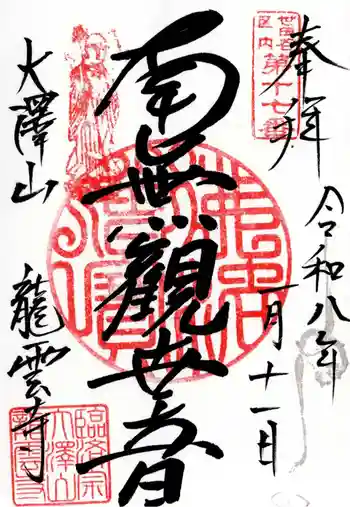 奉拝
世田谷
区内
第十七番
令和八年
一月十一日
南無観世音
大澤山
龍雲寺
臨済宗
大澤山
龍雲寺